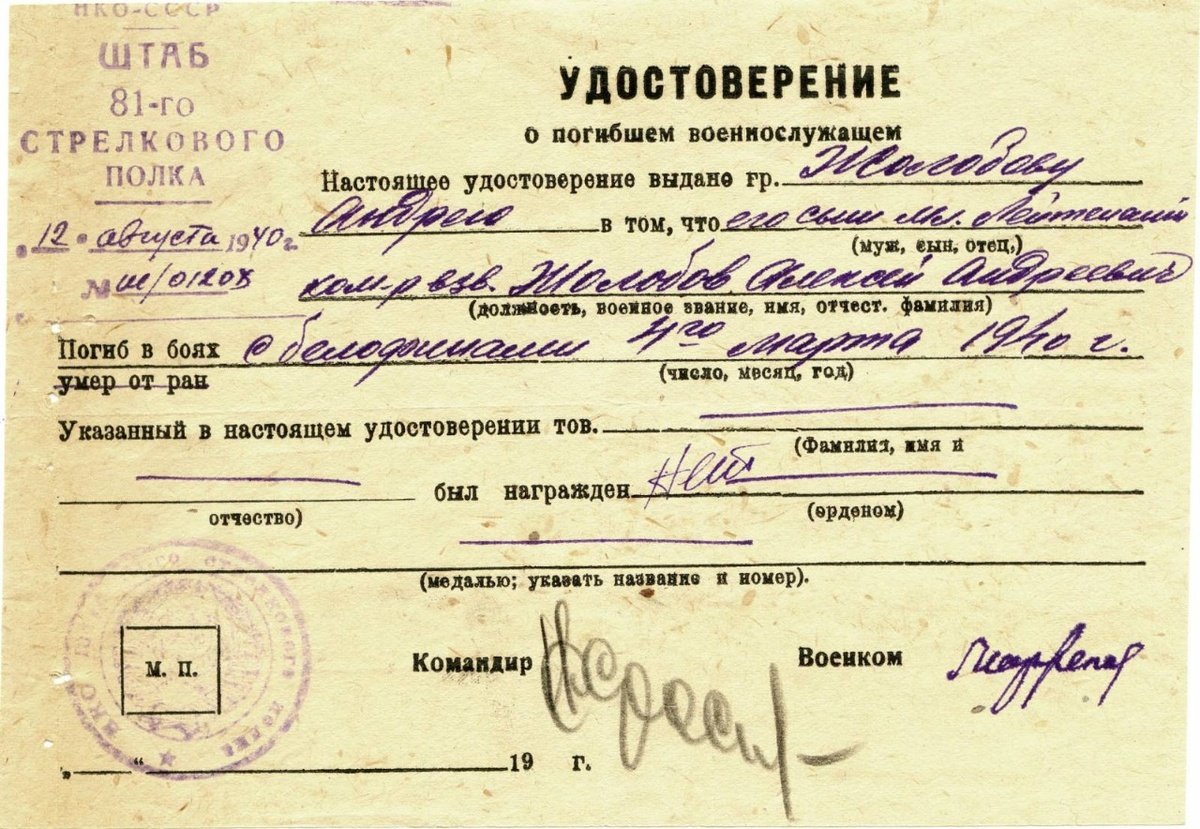 НКО-СССР
ШТАБ
81-го
СТРЕЛКОВОГО
ПОЛКА
"12" августа 1940 г.
№
УДОСТОВЕРЕНИЕ
о погибшем военнослужащем
Настоящее удостоверение выдано гр. Жолобову
Андрею в том, что его сын мл. Лейтенант
(муж, сын, отец,)
ком-р взв. Жолобов Алексей Андреевич
(должность, военное звание, имя, отчест. фамилия)
Погиб в боях с белофинами 4го марта 1940 г.
умер от ран
(число, месяц, год)
Указанный в настоящем удостоверении тов.
(Фамилия, имя и
был награжден Нет
отчество)
(орденом)
(медалью; указать название и номер).
Командир
Военком
М. П.
„ “ 19 г.